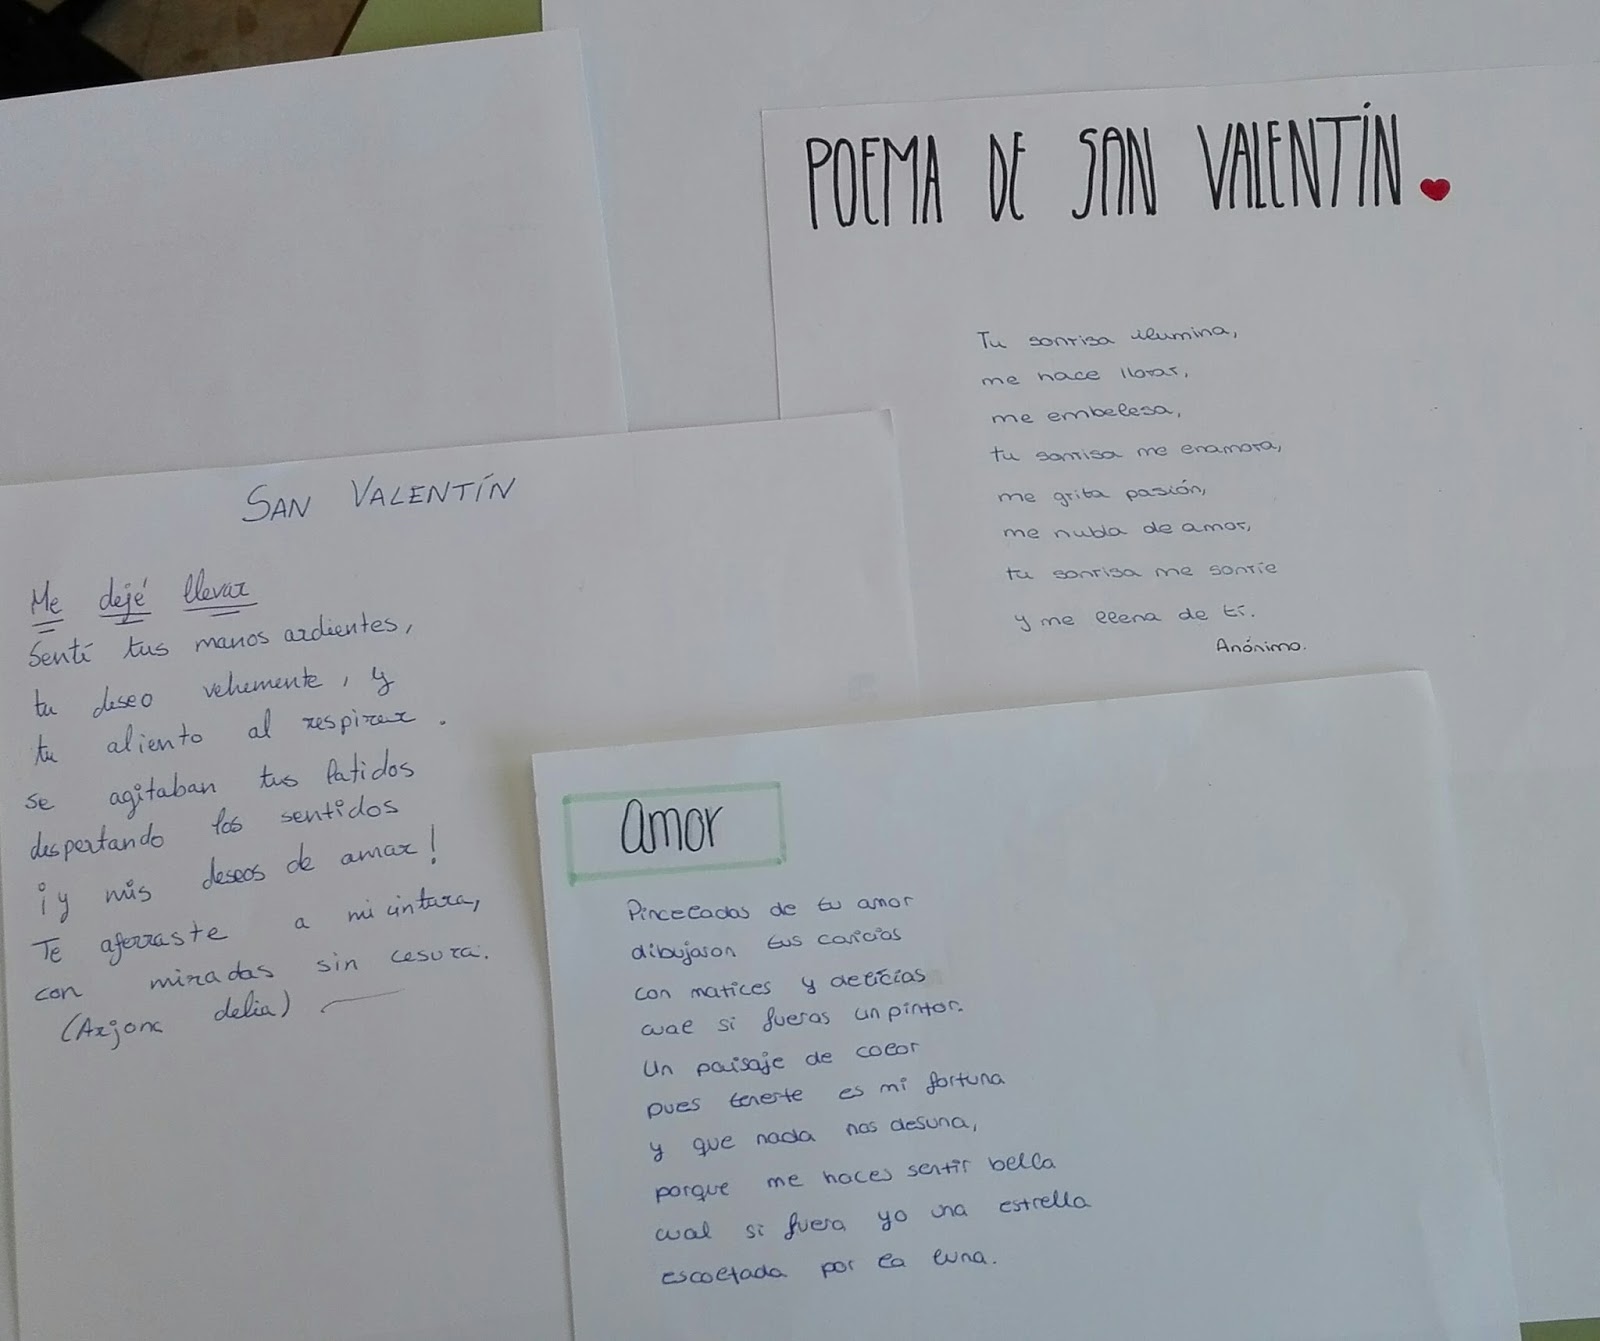 POEMA DE SAN VALENTÍN
Tu sonrisa ilumina,
me hace llorar,
me embelesa,
tu sonrisa me enamora,
me grita pasión,
me nubla de amor,
tu sonrisa me sonríe
y me llena de tí.
Anónimo.
SAN VALENTÍN
Me dejé llevar
Sentí tus manos ardientes,
tu deseo vehemente, y
tu aliento al respirar.
se agitaban tus latidos
despertando los sentidos
¡y mis deseos de amar!
Te aferraste a mi cintura,
con miradas sin cesura.
(Arjona delia)
Amor
Pinceladas de tu amor
dibujaron tus caricias
con matices y delicias
cual si fueras un pintor.
Un paisaje de color
pues tenerte es mi fortuna
y que nada nos desuna,
porque me haces sentir bella
cual si fuera yo una estrella
escoltada por la luna.